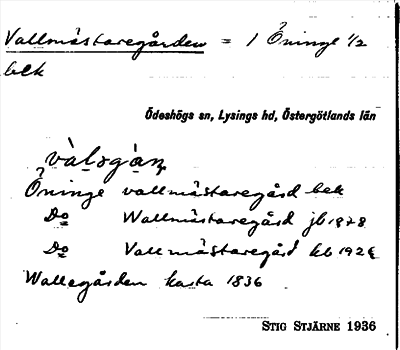 Vallmästaregården = 1 Öninge 1/2
bek
Ödeshögs sn, Lysings hd, Östergötlands län
vàlsgàn
Öninge vallmästaregård bek
Do Wallmästaregård jb 1878
Do Vallmästaregård kb 192
Wallegården karta 1836
STIG STJÄRNE 1936